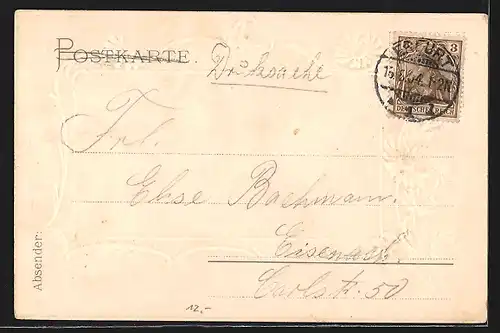 POSTKARTE.
Drucksache
3
ERFURT
DEUTSCHES REICH
Frl.
Else Bachmann.
Eisenach.
Carlstr. 50
Absender:
12.-